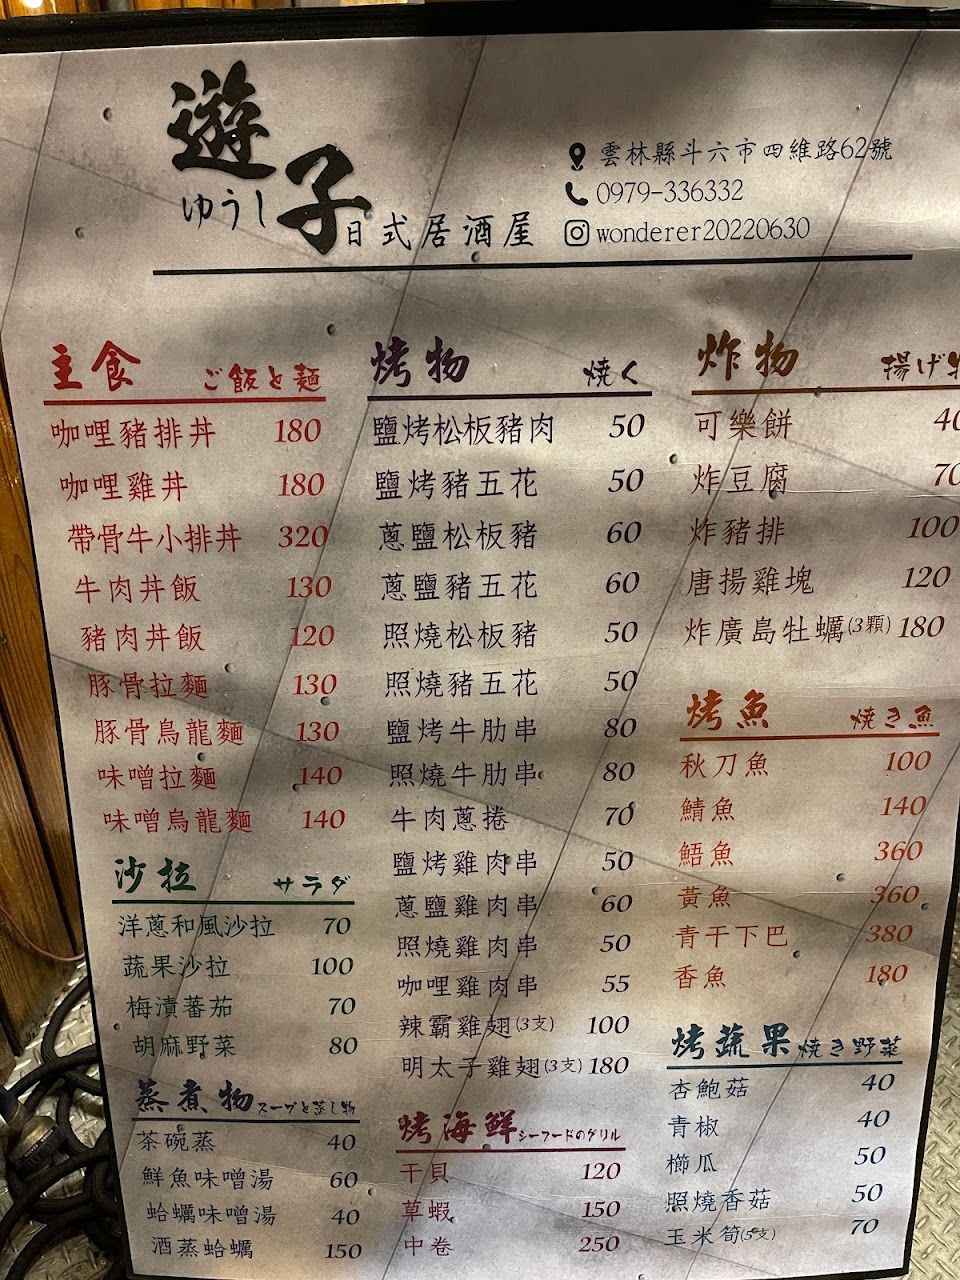 遊子
ゆうし
日式居酒屋
雲林縣斗六市四維路62號
0979-336332
wonderer20220630
主食 ご飯と麺
咖哩豬排丼 180
咖哩雞丼 180
帶骨牛小排丼 320
牛肉丼飯 130
豬肉丼飯 120
豚骨拉麵 130
豚骨烏龍麵 130
味噌拉麵 140
味噌烏龍麵 140
沙拉 サラダ
洋蔥和風沙拉 70
蔬果沙拉 100
梅漬蕃茄 70
胡麻野菜 80
蒸煮物 スープと蒸し物
茶碗蒸 40
鮮魚味噌湯 60
蛤蠣味噌湯 40
酒蒸蛤蠣 150
烤物 焼く
鹽烤松板豬肉 50
鹽烤豬五花 50
蔥鹽松板豬 60
蔥鹽豬五花 60
照燒松板豬 50
照燒豬五花 50
鹽烤牛肋串 80
照燒牛肋串 80
牛肉蔥捲 70
鹽烤雞肉串 50
蔥鹽雞肉串 60
照燒雞肉串 50
咖哩雞肉串 55
辣霸雞翅(3支) 100
明太子雞翅(3支) 180
烤海鮮 シーフードのグリル
干貝 120
草蝦 150
中卷 250
炸物 揚げ
可樂餅 40
炸豆腐 70
炸豬排 100
唐揚雞塊 120
炸廣島牡蠣(3顆) 180
烤魚 焼き魚
秋刀魚 100
鯖魚 140
鯃魚 360
黃魚 360
青干下巴 380
香魚 180
烤蔬果 焼き野菜
杏鮑菇 40
青椒 40
櫛瓜 50
照燒香菇 50
玉米筍(5支) 70